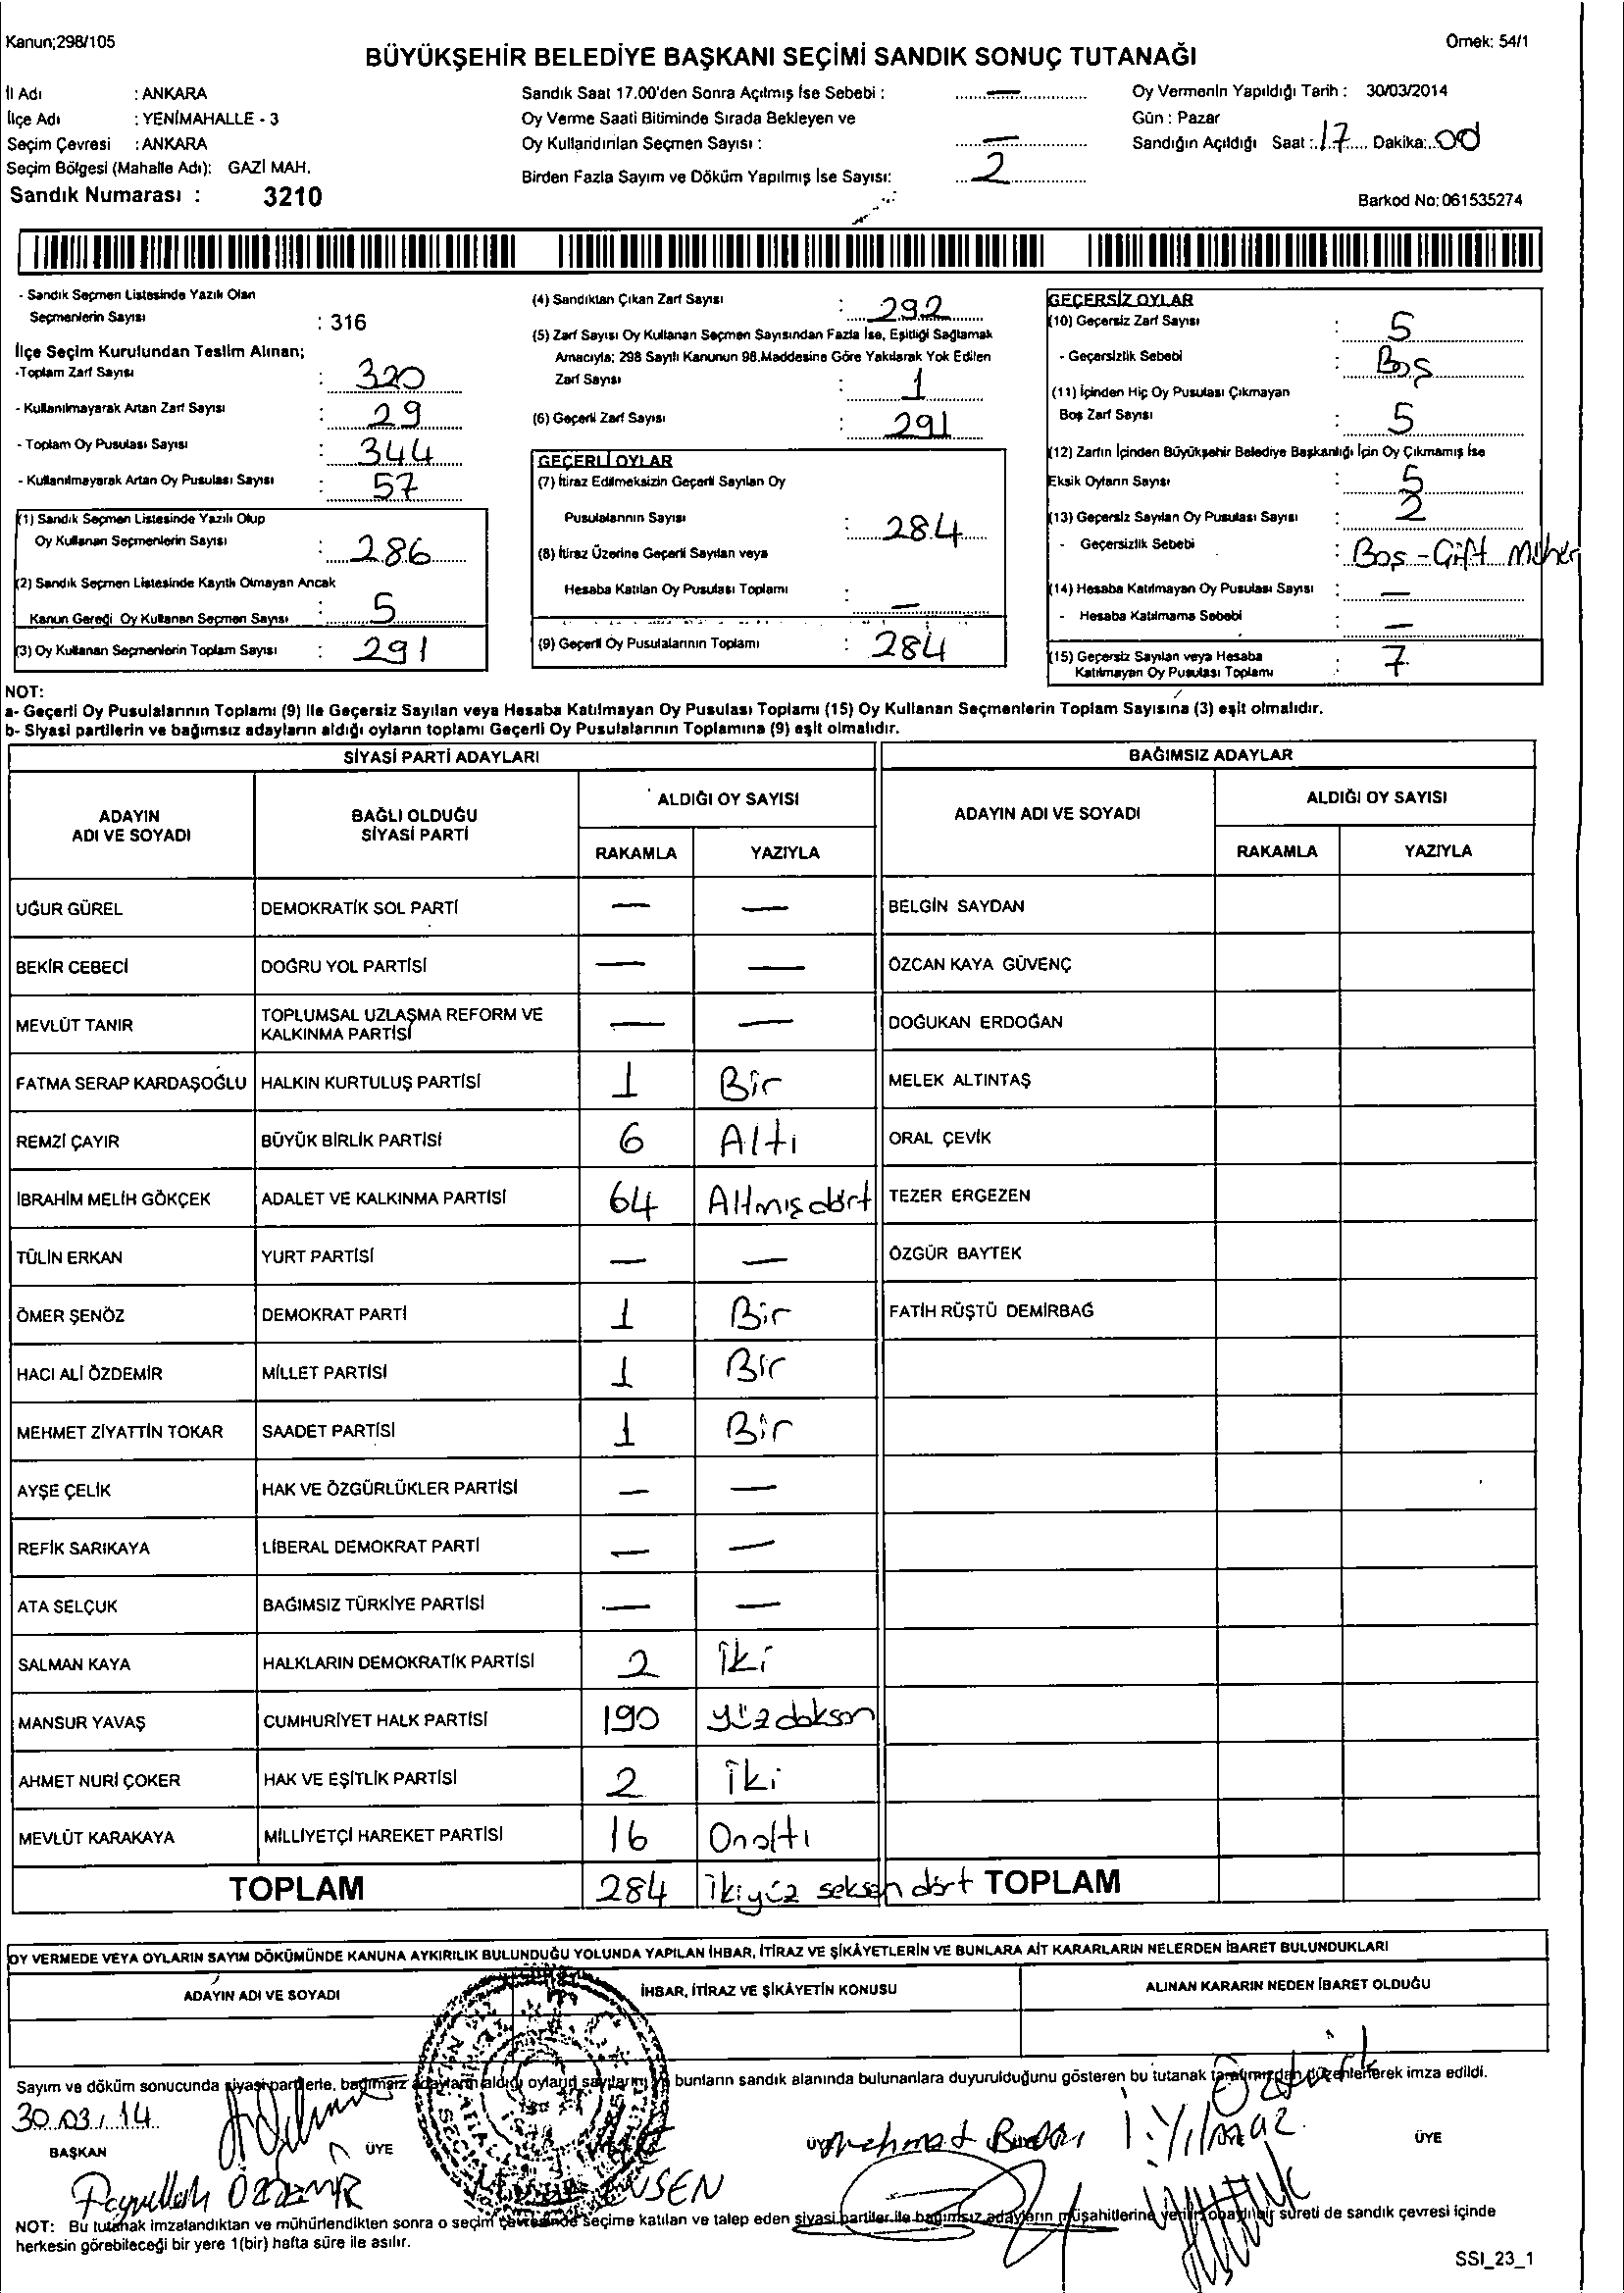 Kanun;298/105
Örnek: 54/1
BÜYÜKŞEHİR BELEDİYE BAŞKANI SEÇİMİ SANDIK SONUÇ TUTANAĞI
İl Adı : ANKARA
İlçe Adı : YENİMAHALLE - 3
Seçim Çevresi : ANKARA
Seçim Bölgesi (Mahalle Adı): GAZİ MAH.
Sandık Numarası : 3210
Sandık Saat 17.00'den Sonra Açılmış İse Sebebi : —
Oy Verme Saati Bitiminde Sırada Bekleyen ve
Oy Kullandırılan Seçmen Sayısı : —
Birden Fazla Sayım ve Döküm Yapılmış İse Sayısı: 2
Oy Vermenin Yapıldığı Tarih : 30/03/2014
Gün : Pazar
Sandığın Açıldığı Saat : 17 Dakika: 00
Barkod No: 061535274
- Sandık Seçmen Listesinde Yazılı Olan
Seçmenlerin Sayısı : 316
İlçe Seçim Kurulundan Teslim Alınan;
-Toplam Zarf Sayısı : 320
- Kullanılmayarak Artan Zarf Sayısı : 29
- Toplam Oy Pusulası Sayısı : 344
- Kullanılmayarak Artan Oy Pusulası Sayısı : 57
(1) Sandık Seçmen Listesinde Yazılı Olup
Oy Kullanan Seçmenlerin Sayısı : 286
(2) Sandık Seçmen Listesinde Kayıtlı Olmayan Ancak
Kanun Gereği Oy Kullanan Seçmen Sayısı : 5
(3) Oy Kullanan Seçmenlerin Toplam Sayısı : 291
(4) Sandıktan Çıkan Zarf Sayısı : 292
(5) Zarf Sayısı Oy Kullanan Seçmen Sayısından Fazla İse, Eşitliği Sağlamak
Amacıyla; 298 Sayılı Kanunun 98.Maddesine Göre Yakılarak Yok Edilen
Zarf Sayısı : 1
(6) Geçerli Zarf Sayısı : 291
GEÇERLİ OYLAR
(7) İtiraz Edilmeksizin Geçerli Sayılan Oy
Pusulalarının Sayısı : 284
(8) İtiraz Üzerine Geçerli Sayılan veya
Hesaba Katılan Oy Pusulası Toplamı : —
(9) Geçerli Oy Pusulalarının Toplamı : 284
GEÇERSİZ OYLAR
(10) Geçersiz Zarf Sayısı : 5
- Geçersizlik Sebebi : Boş
(11) İçinden Hiç Oy Pusulası Çıkmayan
Boş Zarf Sayısı : 5
(12) Zarfın İçinden Büyükşehir Belediye Başkanlığı İçin Oy Çıkmamış İse
Eksik Oyların Sayısı : 5
(13) Geçersiz Sayılan Oy Pusulası Sayısı : 2
- Geçersizlik Sebebi : Boş - Çift Müher
(14) Hesaba Katılmayan Oy Pusulası Sayısı : —
- Hesaba Katılmama Sebebi : —
(15) Geçersiz Sayılan veya Hesaba
Katılmayan Oy Pusulası Toplamı : 7
NOT:
a- Geçerli Oy Pusulalarının Toplamı (9) İle Geçersiz Sayılan veya Hesaba Katılmayan Oy Pusulası Toplamı (15) Oy Kullanan Seçmenlerin Toplam Sayısına (3) eşit olmalıdır.
b- Siyasi partilerin ve bağımsız adayların aldığı oyların toplamı Geçerli Oy Pusulalarının Toplamına (9) eşit olmalıdır.
SİYASİ PARTİ ADAYLARI
BAĞIMSIZ ADAYLAR
ADAYIN ADI VE SOYADI
BAĞLI OLDUĞU SİYASİ PARTİ
ALDIĞI OY SAYISI
RAKAMLA YAZIYLA
ADAYIN ADI VE SOYADI
ALDIĞI OY SAYISI
RAKAMLA YAZIYLA
UĞUR GÜREL DEMOKRATİK SOL PARTİ — — BELGİN SAYDAN
BEKİR CEBECİ DOĞRU YOL PARTİSİ — — ÖZCAN KAYA GÜVENÇ
MEVLÜT TANIR TOPLUMSAL UZLAŞMA REFORM VE KALKINMA PARTİSİ — — DOĞUKAN ERDOĞAN
FATMA SERAP KARDAŞOĞLU HALKIN KURTULUŞ PARTİSİ 1 Bir MELEK ALTINTAŞ
REMZİ ÇAYIR BÜYÜK BİRLİK PARTİSİ 6 Altı ORAL ÇEVİK
İBRAHİM MELİH GÖKÇEK ADALET VE KALKINMA PARTİSİ 64 Altmışdört TEZER ERGEZEN
TÜLİN ERKAN YURT PARTİSİ — — ÖZGÜR BAYTEK
ÖMER ŞENÖZ DEMOKRAT PARTİ 1 Bir FATİH RÜŞTÜ DEMİRBAĞ
HACI ALİ ÖZDEMİR MİLLET PARTİSİ 1 Bir
MEHMET ZİYATTİN TOKAR SAADET PARTİSİ 1 Bir
AYŞE ÇELİK HAK VE ÖZGÜRLÜKLER PARTİSİ — —
REFİK SARIKAYA LİBERAL DEMOKRAT PARTİ — —
ATA SELÇUK BAĞIMSIZ TÜRKİYE PARTİSİ — —
SALMAN KAYA HALKLARIN DEMOKRATİK PARTİSİ 2 İki
MANSUR YAVAŞ CUMHURİYET HALK PARTİSİ 190 yüzdokson
AHMET NURİ ÇOKER HAK VE EŞİTLİK PARTİSİ 2 İki
MEVLÜT KARAKAYA MİLLİYETÇİ HAREKET PARTİSİ 16 Onaltı
TOPLAM 284 İkiyüz seksen dört TOPLAM
OY VERMEDE VEYA OYLARIN SAYIM DÖKÜMÜNDE KANUNA AYKIRILIK BULUNDUĞU YOLUNDA YAPILAN İHBAR, İTİRAZ VE ŞİKÂYETLERİN VE BUNLARA AİT KARARLARIN NELERDEN İBARET BULUNDUKLARI
ADAYIN ADI VE SOYADI
İHBAR, İTİRAZ VE ŞİKÂYETİN KONUSU
ALINAN KARARIN NEDEN İBARET OLDUĞU
Sayım ve döküm sonucunda siyasi partilerle, bağımsız adayların aldığı oyların sayılarını ve bunların sandık alanında bulunanlara duyurulduğunu gösteren bu tutanak tarafımızdan düzenlenerek imza edildi.
30.03.14
BAŞKAN ÜYE ÜYE ÜYE
Öztürk
İ.Yılmaz
NOT: Bu tutanak imzalandıktan ve mühürlendikten sonra o seçim çevresinde seçime katılan ve talep eden siyasi partiler ile bağımsız adayların müşahitlerine verilir, onaylı bir sureti de sandık çevresi içinde
herkesin görebileceği bir yere 1(bir) hafta süre ile asılır.
SSI_23_1